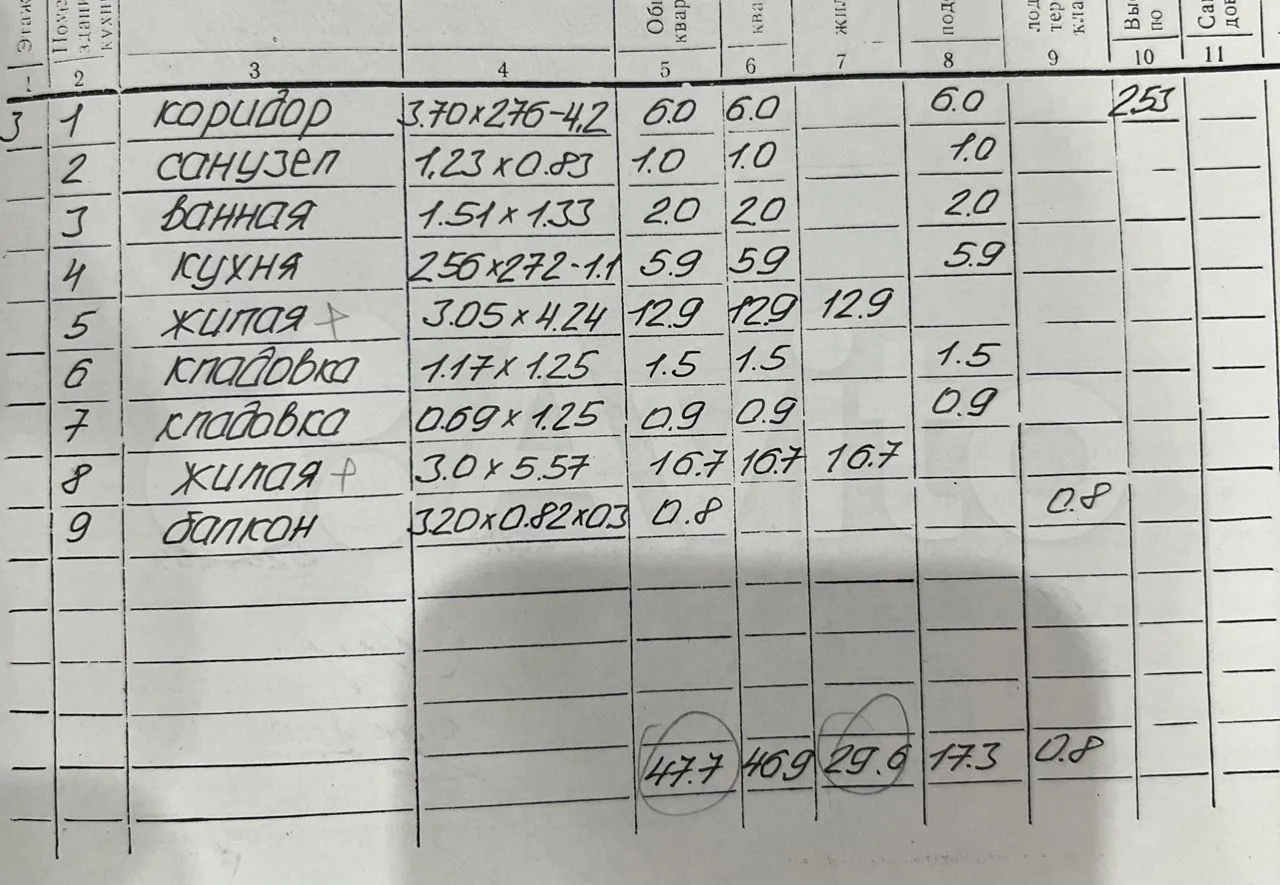 Этаж
кухн
Об
квар
ква
жил
под
лод
тер
кла
Вы
по
Са
дов
1 2 3 4 5 6 7 8 9 10 11
3 1 коридор 3.70x276-4.2 6.0 6.0 6.0 2.53
2 санузел 1.23x0.83 1.0 1.0 1.0
3 ванная 1.51x1.33 2.0 2.0 2.0
4 кухня 256x272-1.1 5.9 5.9 5.9
5 жилая + 3.05x4.24 12.9 12.9 12.9
6 кладовка 1.17x1.25 1.5 1.5 1.5
7 кладовка 0.69x1.25 0.9 0.9 0.9
8 жилая + 3.0x5.57 16.7 16.7 16.7
9 балкон 320x0.82x03 0.8 0.8
47.7 46.9 29.6 17.3 0.8
Avito